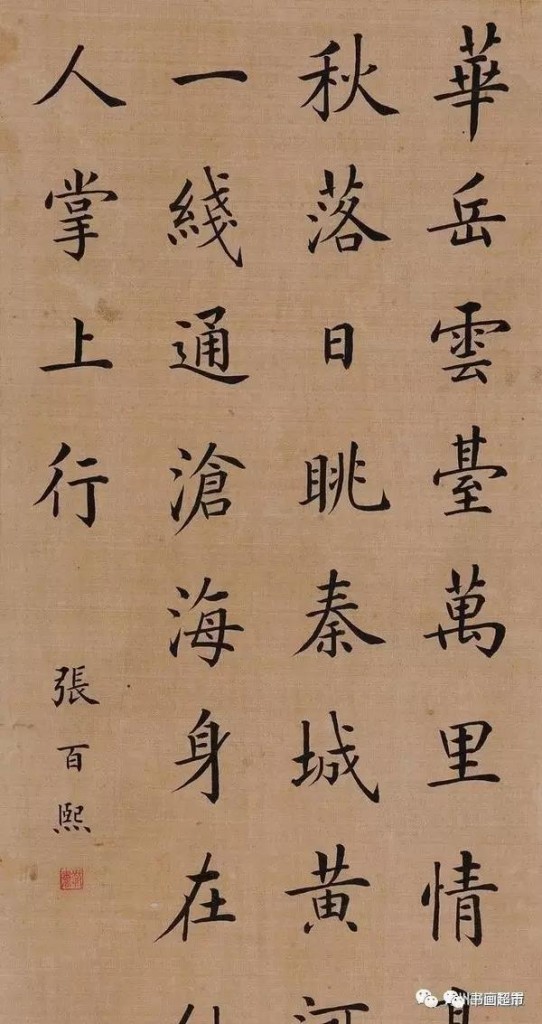 華岳雲臺萬里情
秋落日眺秦城黄河
一綫通滄海身在
人掌上行
張百熙
书画超市